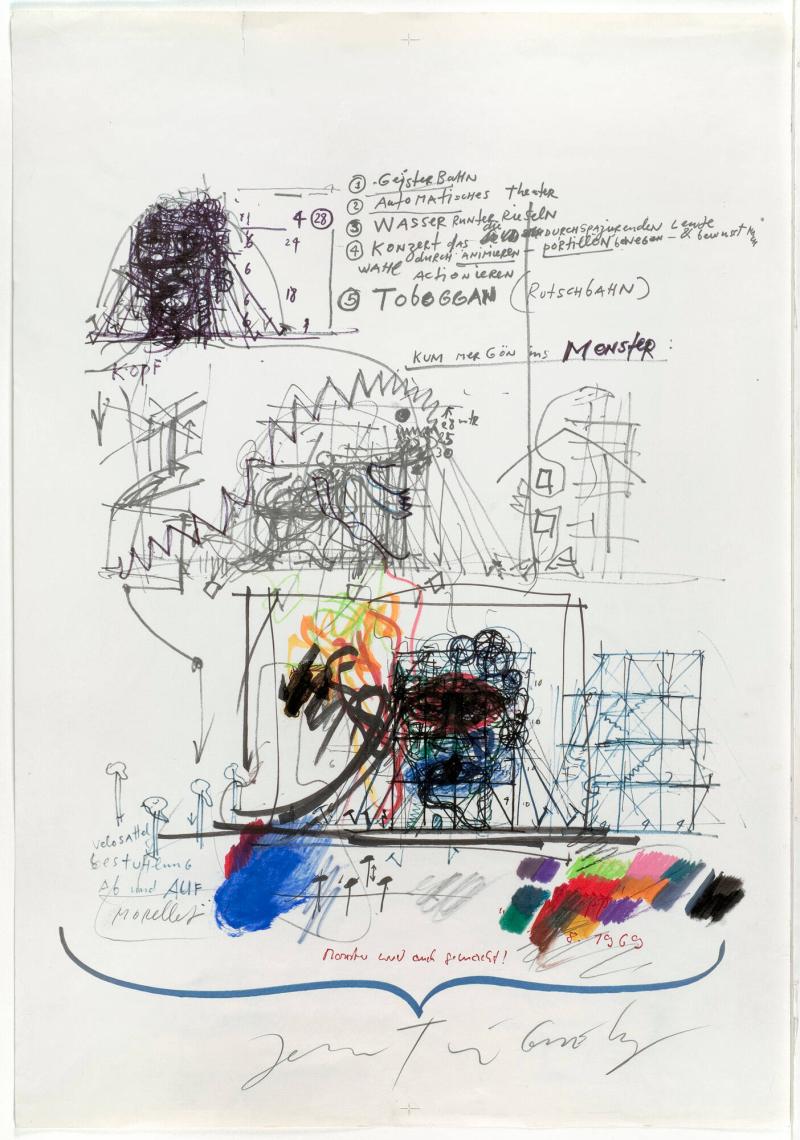 ① -GeisterBahn
② AutoMatisches Theater
③ WASSER RUNTER RIESELN
④ KONZERT das die DURCHSPAZIERENDEN Leute
durch ANIMIEREN - PORTILLON bewegen - & bewusst
WAHL ACTIONIEREN
⑤ TobOGGAN (RUTSCHBAHN)
11 4 28
6 24
6
6 18
6
KOPF
KUM MER GÖN ins MONSTER:
25
30
10
10
6
7 10
9 9 9
velosattel
bestuhlung
Ab und AUF
MORELLET
8. 1969
Monster wird auch gemacht!
Jean Tinguely